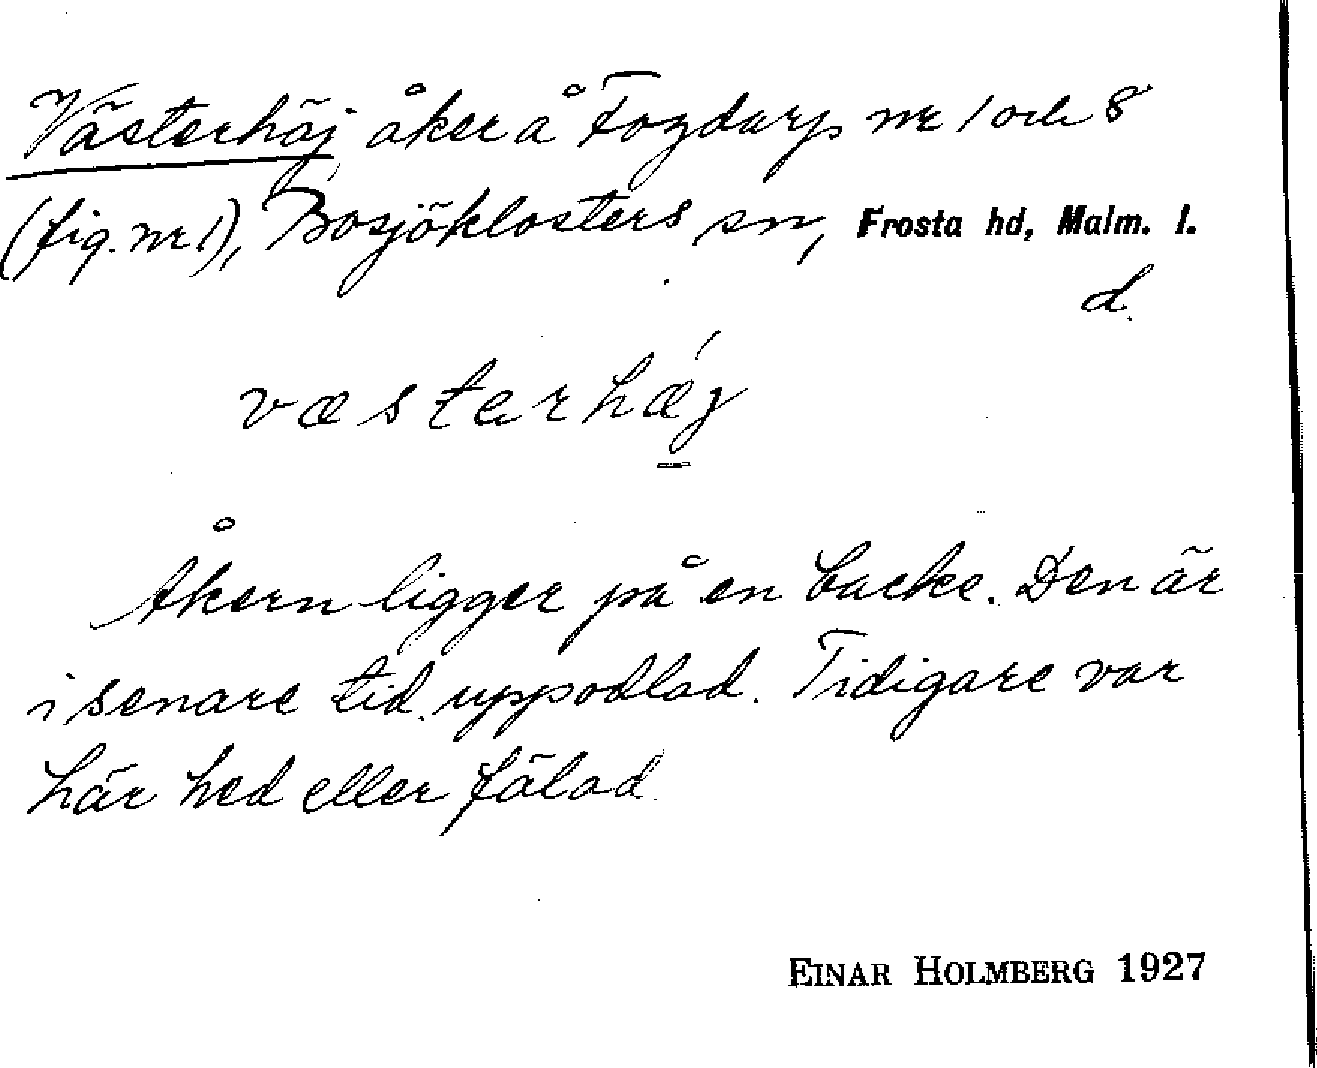 Västerhäj åker å Fogdarp nr 1 och 8
(fig. nr 1), Bosjöklosters sn, Frosta hd, Malm. l.
d.
væstarhǽj
Åkern ligger på en backe. Den är
i senare tid uppodlad. Tidigare var
här hed eller fälad.
EINAR HOLMBERG 1927